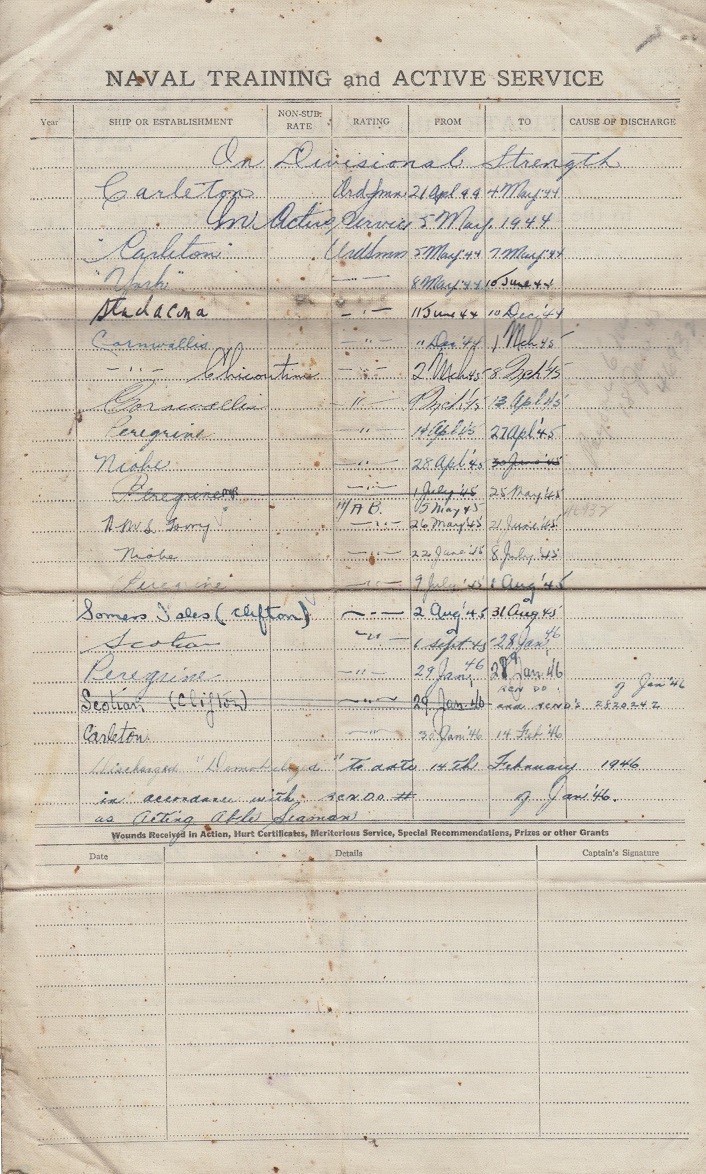 NAVAL TRAINING and ACTIVE SERVICE
Year SHIP OR ESTABLISHMENT NON-SUB. RATE RATING FROM TO CAUSE OF DISCHARGE
On Divisional Strength
Carleton Ord Smn 21 Apl 44 4 May '44
On Active Service 5 May 1944
"Carleton" Ord Smn 5 May '44 7 May '44
"York" —"— 8 May '44 10 June 44
Stadacona —"— 11 June 44 10 Dec '44
Cornwallis —"— 11 Dec '44 1 Mch 45
—"— Chicoutimi —"— 2 Mch 45 8 Mch '45
Cornwallis —"— 9 Mch '45 13 Apl 45
Peregrine —"— 14 Apl 45 27 Apl '45
Niobe —"— 28 Apl '45 30 June '45
Peregrine —"— 1 July '45 25 May '45
A.B. 15 May 45
—"— 26 May '45 21 June '45
Niobe —"— 22 June '45 8 July '45
Peregrine —"— 9 July '45 1 Aug '45
Somers Isles (Clifton) —"— 2 Aug '45 31 Aug 45
Scotian —"— 1 Sept 45 28 Jan '46
Peregrine —"— 29 Jan '46 29 Jan '46
RCN DO of Jan '46
Scotian (Clifton) —"— 29 Jan 46 and RCND's 2820242
Carleton —"— 30 Jan '46 14 Feb '46
Discharged "Demobilized" to date 14th February 1946
in accordance with RCNDO # of Jan '46.
as Acting Able Seaman
Wounds Received in Action, Hurt Certificates, Meritorious Service, Special Recommendations, Prizes or other Grants
Date Details Captain's Signature